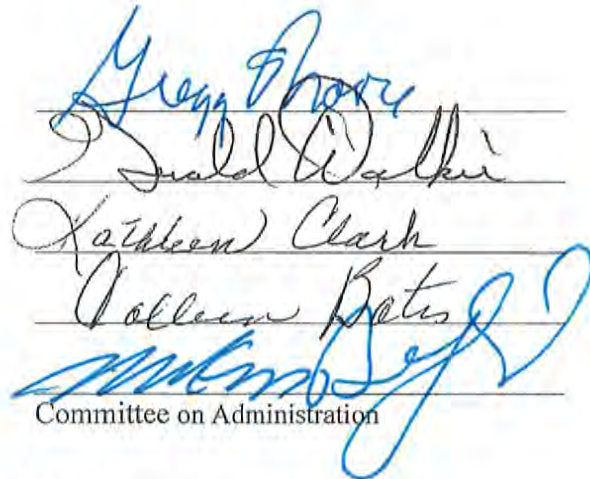 Gregg Moore
Gerald Walker
Kathleen Clark
Colleen Bates
Committee on Administration